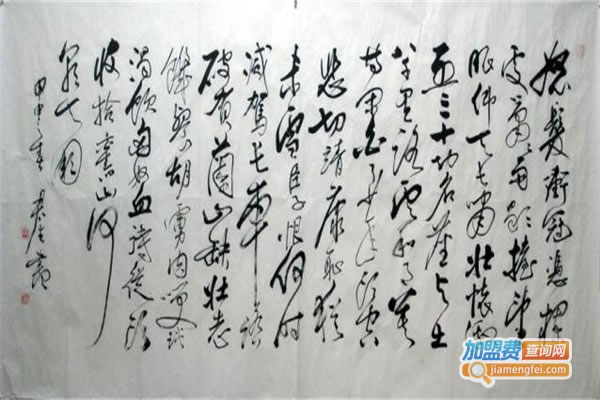 怒髮衝冠憑欄
處蕭蕭雨歇擡望
眼仰天长嘯壮懷激
烈三十功名塵与土
八千里路雲和月莫
等閒白了少年頭空
悲切靖康恥猶
未雪臣子恨何时
滅駕长車踏
破賀蘭山缺壮志
饑餐胡虜肉笑談
渴飲匈奴血待從頭
收拾舊山河
朝天闕
甲申之春
加盟费查询网
jiamengfei.com